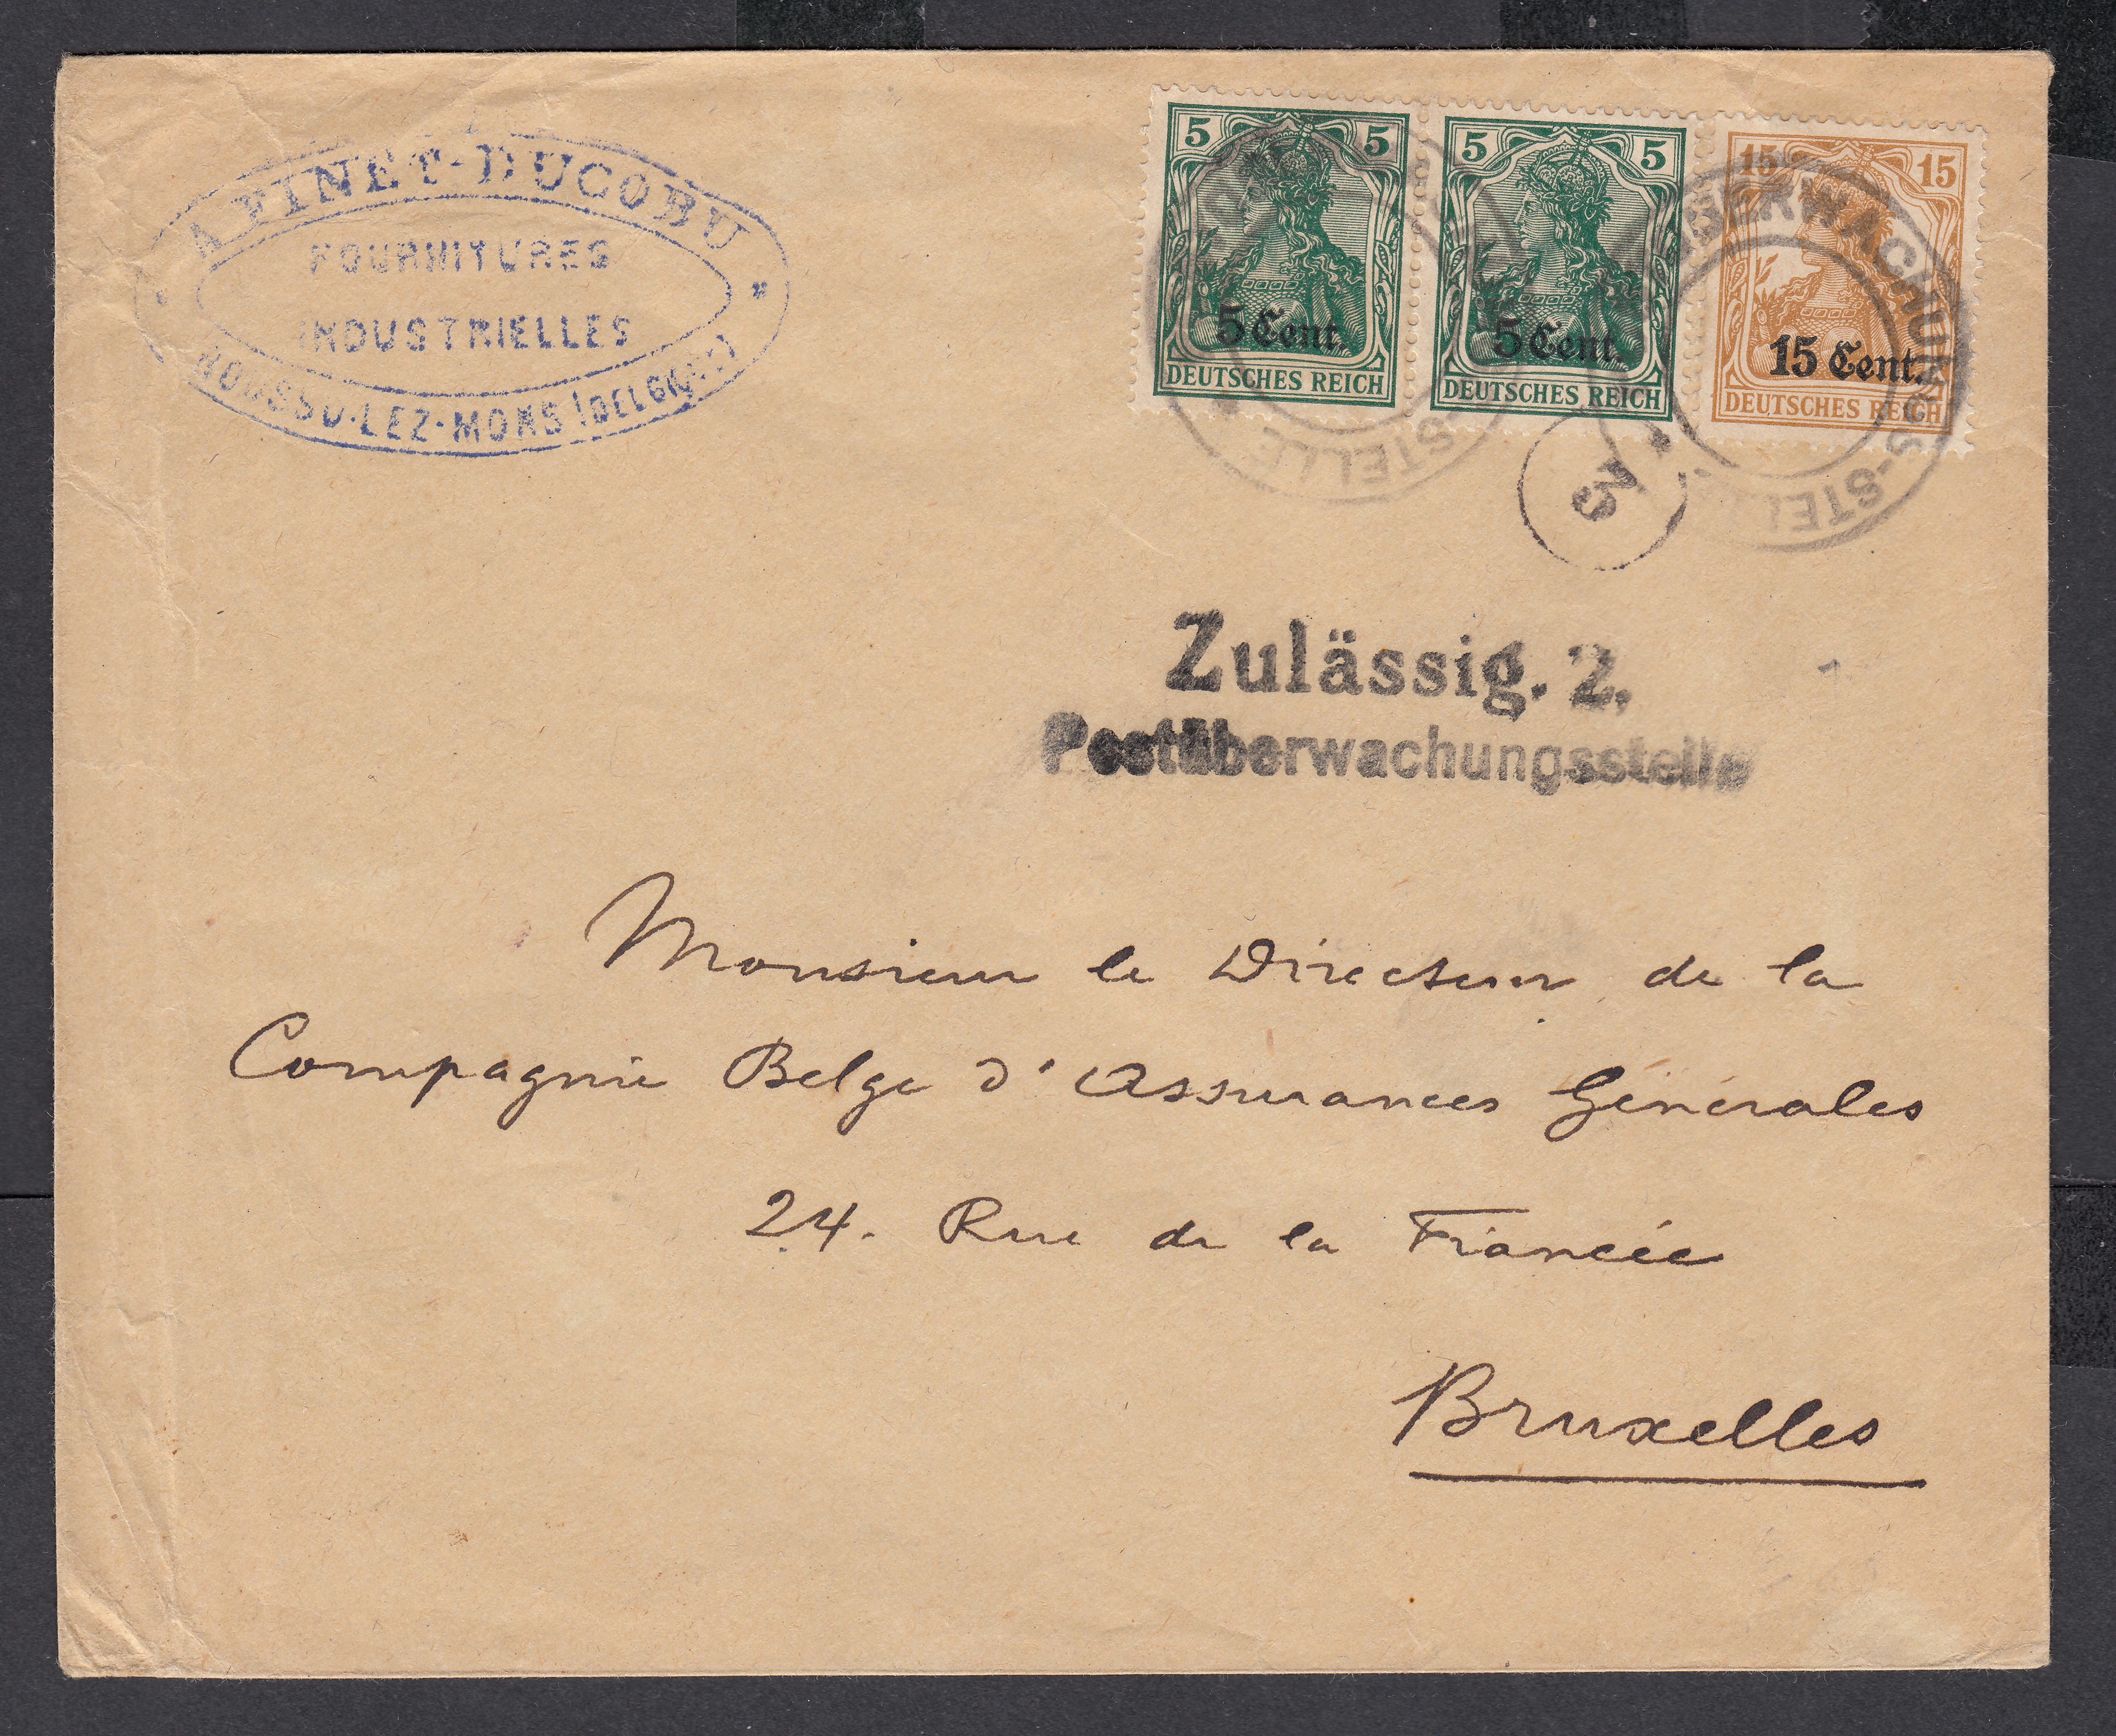 A. FINET-DUCOBU
FOURNITURES
INDUSTRIELLES
BOUSSU-LEZ-MONS (BELGIQUE)
5 5
5 Cent.
DEUTSCHES REICH
5 5
5 Cent.
DEUTSCHES REICH
15 15
15 Cent.
DEUTSCHES REICH
STELLE
ÜBERWACHUNGS-STELLE
Zulässig. 2.
Postüberwachungsstelle
Monsieur le Directeur de la
Compagnie Belge d'Assurances Générales
24. Rue de la Fiancée
Bruxelles